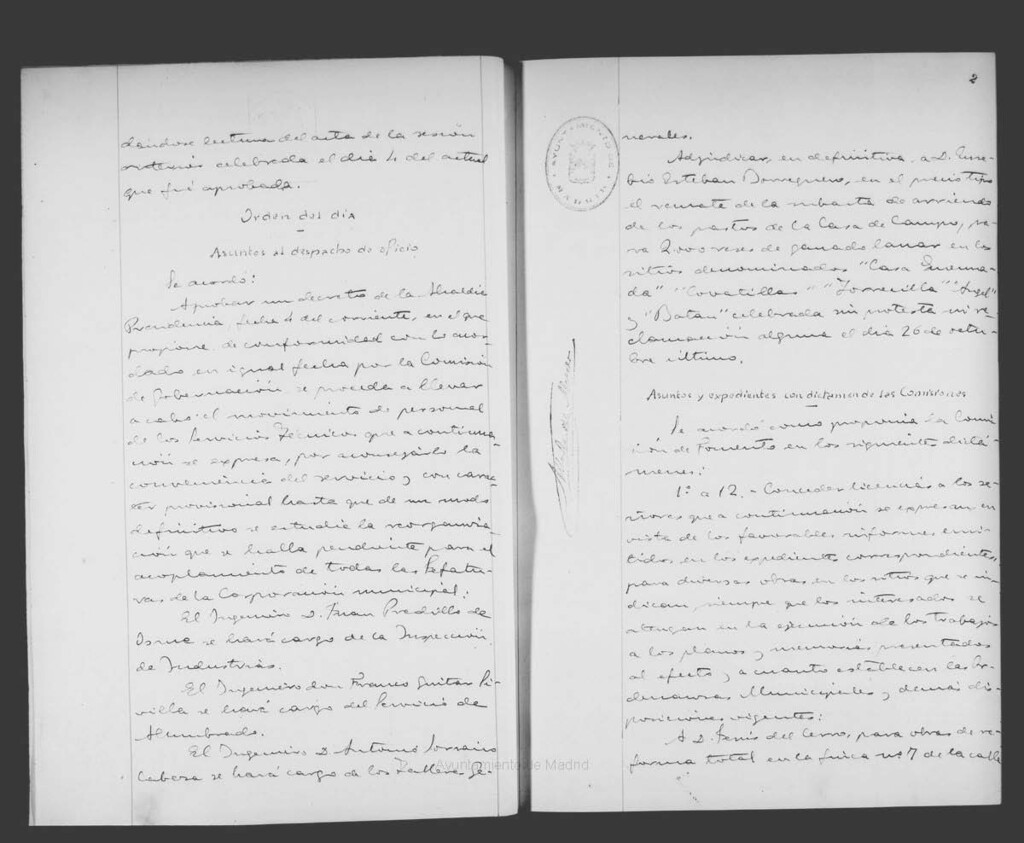 dándose lectura del acta de la sesión
anterior celebrada el día 4 del actual
que fué aprobada.
Orden del día
Asuntos al despacho de oficio
Se acordó:
Aprobar un decreto de la Alcaldía
Presidencia, fecha 4 del corriente, en el que
propone, de conformidad con lo acor-
dado en igual fecha por la Comisión
de Gobernación se proceda a llevar
a cabo el movimiento de personal
de los Servicios Técnicos que a continua-
ción se expresa, por aconsejarlo la
conveniencia del servicio y con carac-
ter provisional hasta que de un modo
definitivo se estudie la reorganiza-
ción que se halla pendiente para el
acoplamiento de todas las Jefatu-
ras de la Corporación municipal:
El Ingeniero D. Juan Pradillo de
Osma se hará cargo de la Inspección
de Industrias.
El Ingeniero don Franco Guitar Pi-
villa se hará cargo del Servicio de
Alumbrado.
El Ingeniero D. Antonio Lorraino
Cabeza se hará cargo de los Talleres Ge-
2
nerales.
Adjudicar, en definitiva, a D. Euse-
bio Esteban Borreguero, en el precio tipo
el remate de la subasta de arriendo
de los pastos de la Casa de Campo, pa-
ra 2.000 reses de ganado lanar en los
sitios denominados "Casa Quemada-
da" "Covatillas" "Torrecilla" "Angel"
y "Batan" celebrada sin protesta ni re-
clamación alguna el día 26 de octu-
bre último.
Asuntos y expedientes con dictamen de las Comisiones
Se acordó como proponía la Comi-
sión de Fomento en los siguientes dictá-
menes:
1º a 12.- Conceder licencias a los se-
ñores que a continuación se expresan en
vista de los favorables informes emi-
tidos, en los expedientes correspondientes,
para diversas obras en los sitios que se in-
dican, siempre que los interesados se
atengan en la ejecución de los trabajos
a los planos y memorias presentados
al efecto y a cuanto establecen las Or-
denanzas Municipales y demás dis-
posiciones vigentes:
A D. Jenis del Cerro, para obras de re-
forma total en la finca nº 7 de la calle
AYUNTAMIENTO DE MADRID
Ayuntamiento de Madrid